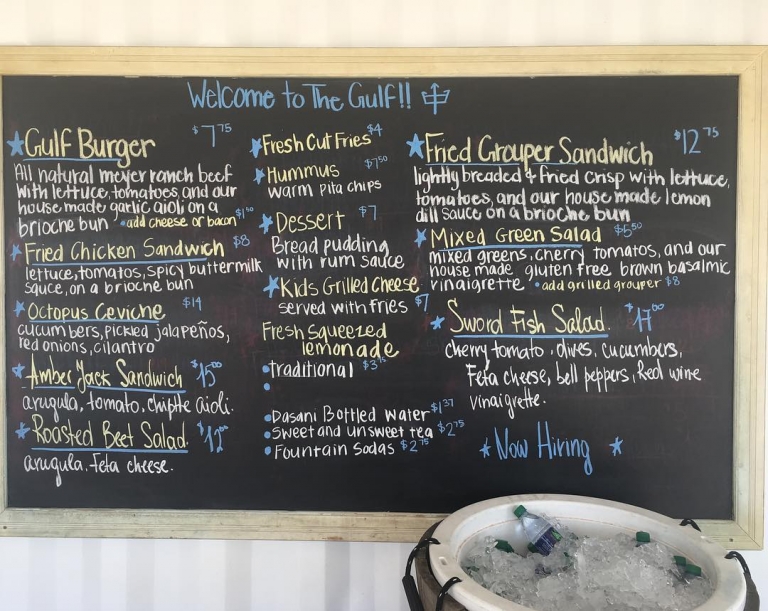 Welcome to The Gulf!!
Gulf Burger $7.75
All natural meyer ranch beef
with lettuce, tomatoes, and our
house made garlic aioli on a
brioche bun • add cheese or bacon $1.50
Fried Chicken Sandwich $8
lettuce, tomatoes, spicy buttermilk
sauce, on a brioche bun
Octopus Ceviche $14
cucumbers, pickled jalapeños,
red onions, cilantro
Amber Jack Sandwich $15.00
arugula, tomato, chiptle aioli.
Roasted Beet Salad
arugula, feta cheese.
Fresh Cut Fries $4
Hummus $7.50
warm pita chips
Dessert $7
Bread pudding
with rum sauce
Kids Grilled Cheese
served with fries $7
Fresh Squeezed
lemonade
• traditional
•
• Dasani Bottled water $1.37
• Sweet and unsweet tea $2.75
• Fountain Sodas $2.75
Fried Grouper Sandwich $12.75
lightly breaded & fried crisp with lettuce,
tomatoes, and our house made lemon
dill sauce on a brioche bun
Mixed Green Salad $6.50
mixed greens, cherry tomatoes, and our
house made gluten free brown basalmic
vinaigrette • add grilled grouper $8
Sword Fish Salad $17.00
cherry tomato, olives, cucumbers,
Feta cheese, bell peppers, Red wine
vinaigrette.
Now Hiring